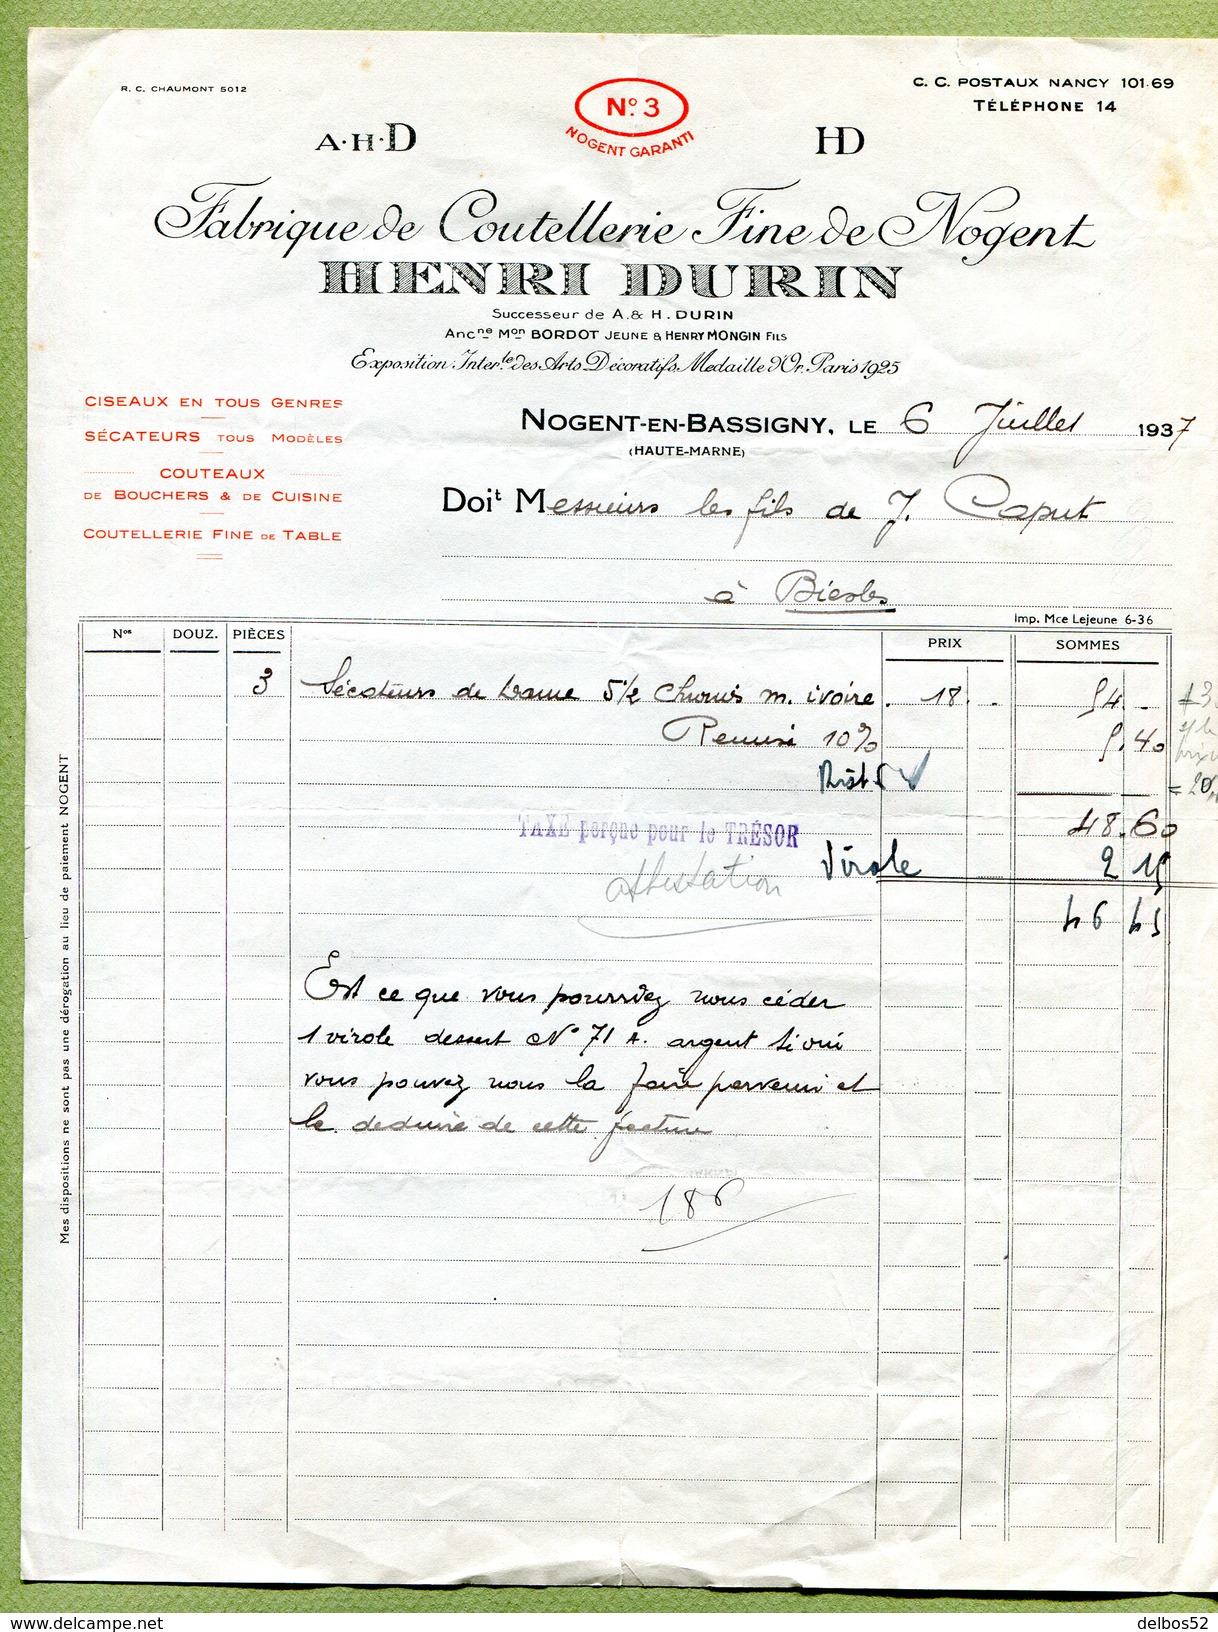 R. C. CHAUMONT 5012
C. C. POSTAUX NANCY 101-69
TÉLÉPHONE 14
N° 3
NOGENT GARANTI
A·H·D
HD
Fabrique de Coutellerie Fine de Nogent
HENRI DURIN
Successeur de A. & H. DURIN
Anc.ne Mon BORDOT JEUNE & HENRY MONGIN FILS
Exposition Inter.le des Arts Décoratifs Medaille d'Or. Paris 1925
CISEAUX EN TOUS GENRES
SÉCATEURS TOUS MODÈLES
COUTEAUX
DE BOUCHERS & DE CUISINE
COUTELLERIE FINE DE TABLE
NOGENT-EN-BASSIGNY, LE 6 Juillet 1937
(HAUTE-MARNE)
Doit Messieurs les fils de J. Caput
à Biesles
Imp. Mce Lejeune 6-36
Nos DOUZ. PIÈCES PRIX SOMMES
3 Sécateurs de Dame 5 1/2 Chromés m. ivoire. 18. - 54. -
Remise 10% 5.40
48.60
TAXE perçue pour le TRÉSOR
Virole 2 15
attestation
46 45
Est ce que vous pourriez nous céder
1 virole dessert N° 71 A. argent si oui
vous pouvez nous la faire parvenir et
la deduire de cette facture
186
Mes dispositions ne sont pas une dérogation au lieu de paiement NOGENT
delbos52